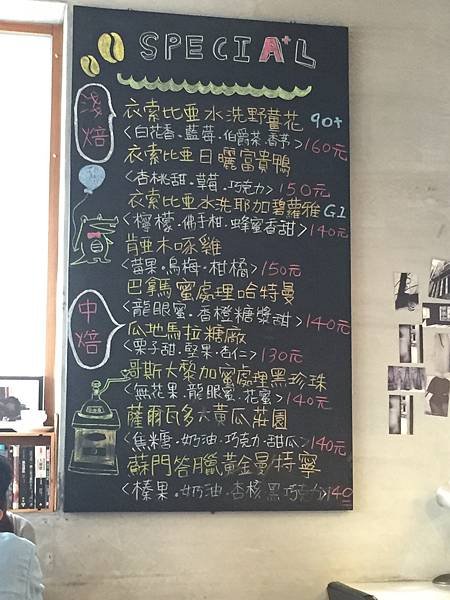 SPECIA+L
淺焙
衣索比亞水洗野薑花 90+
<白花香.藍莓.伯爵茶.香茅>160元
衣索比亞日曬富貴鴨
<杏桃甜.草莓.巧克力>150元
衣索比亞水洗耶加碧蘿雅G1
<檸檬.佛手柑.蜂蜜香甜>140元
肯亞木啄雞
<莓果.烏梅.柑橘>150元
中焙
巴拿馬蜜處理哈特曼
<龍眼蜜.香橙糖漿甜>140元
瓜地馬拉糖廠
<栗子甜.堅果.杏仁>130元
哥斯大黎加蜜處理黑珍珠
<無花果.龍眼蜜.花蜜>140元
薩爾瓦多大黃瓜莊園
<焦糖.奶油.巧克力.甜瓜>140元
蘇門答臘黃金曼特寧
<榛果.奶油.杏核黑巧克力>140